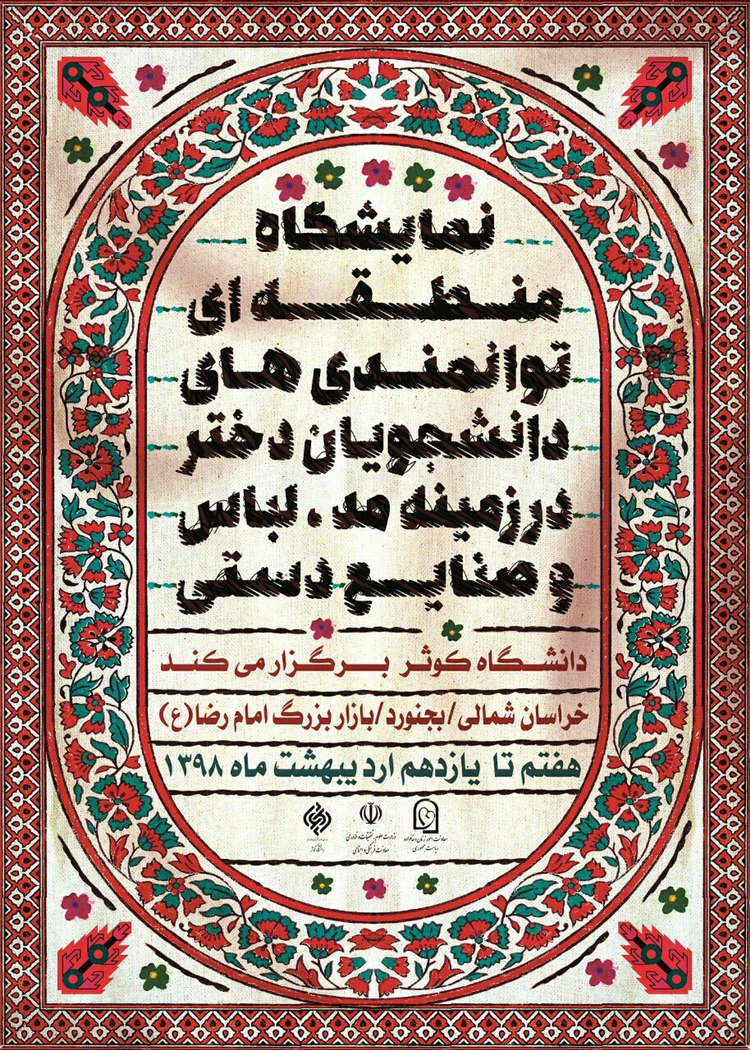 نمایشگاه
منطقه ای
توانمندی های
دانشجویان دختر
درزمینه مد، لباس
و صنایع دستی
دانشگاه کوثر برگزار می کند
خراسان شمالی/بجنورد/بازار بزرگ امام رضا(ع)
هفتم تا یازدهم اردیبهشت ماه ۱۳۹۸
معاونت امور زنان و خانواده
ریاست جمهوری
وزارت علوم، تحقیقات و فناوری
معاونت فرهنگی و اجتماعی
دانشگاه کوثر